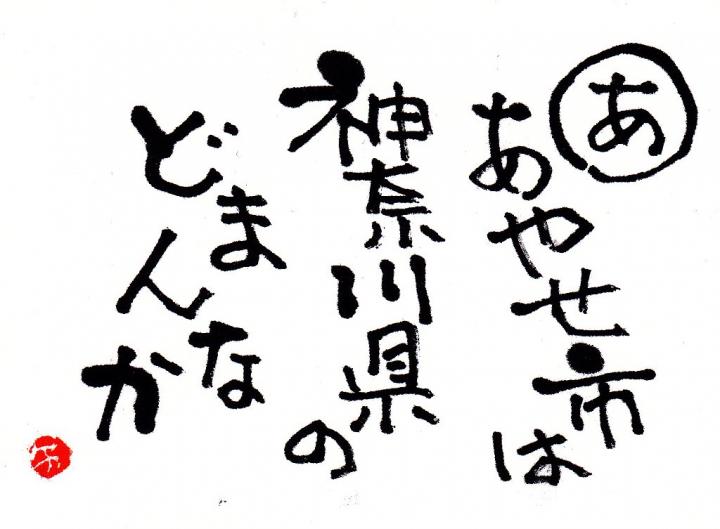 あ
あやせ市は
神奈川県の
どまんなか